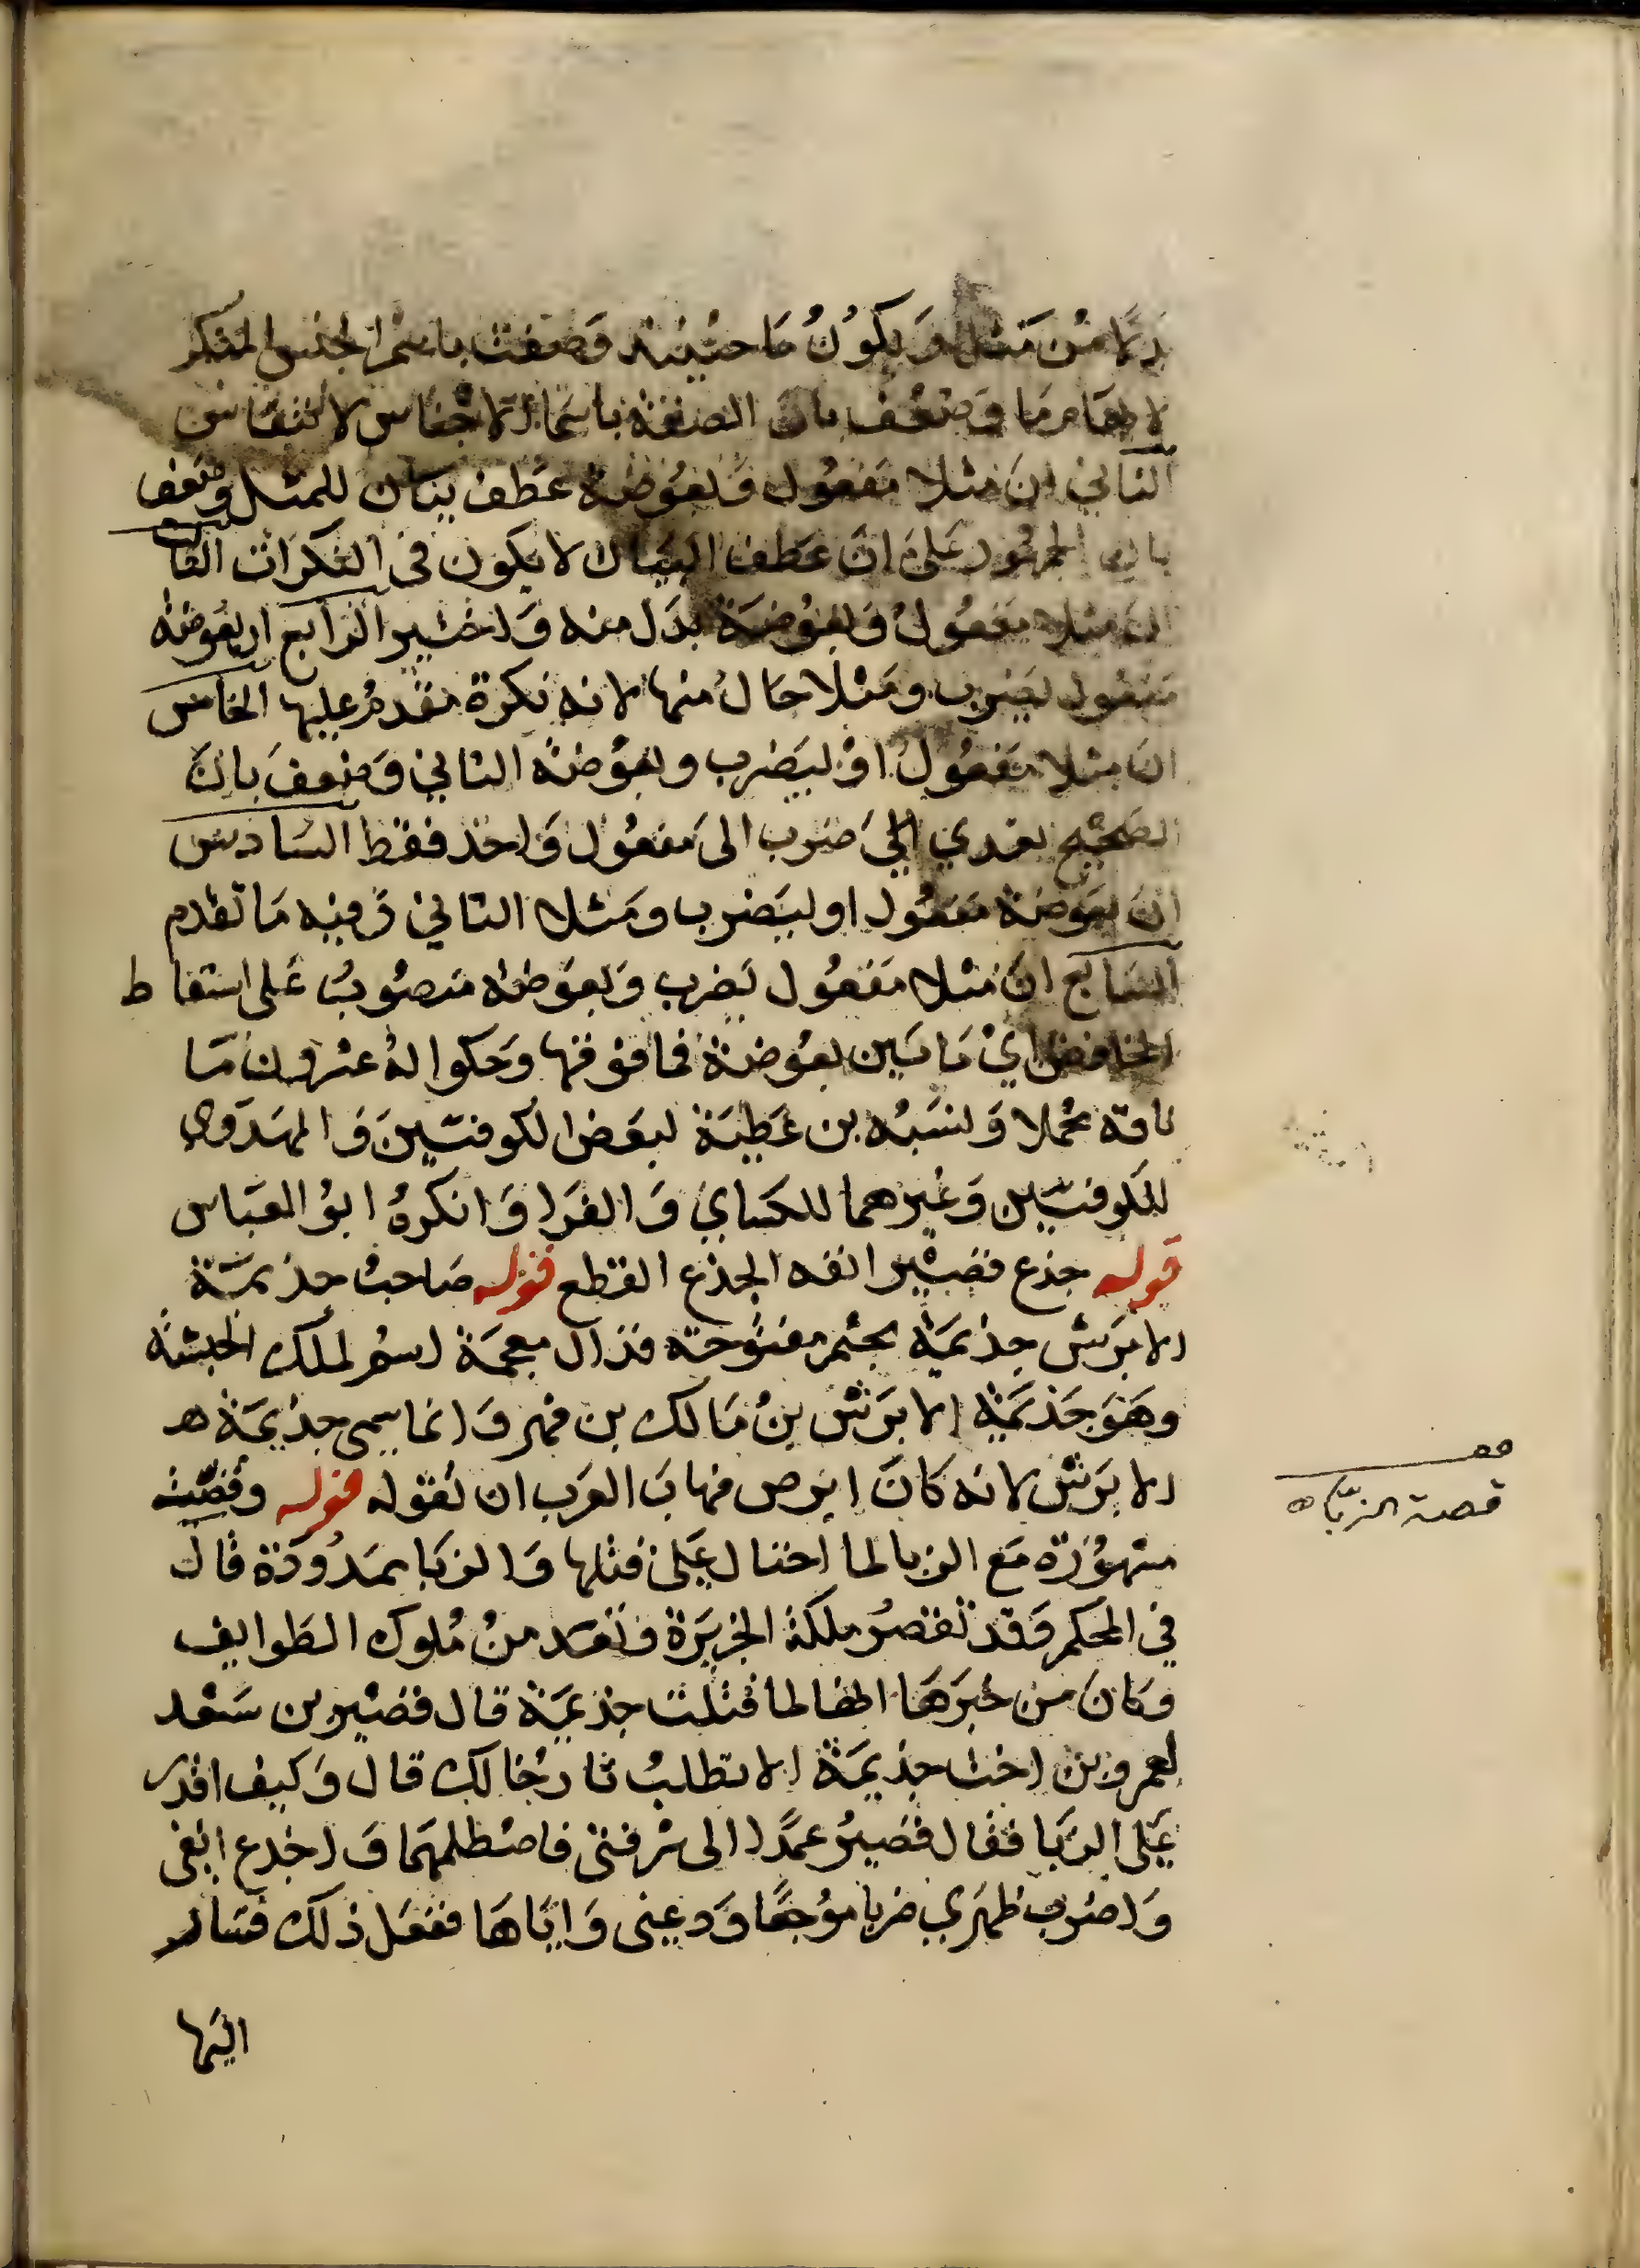 من مثلا ويكون ما حينيذ وصفت باسم الجنس المنكر
لابهام ما وضعف بان الصفة باسما الاجناس لا تنقاس
الثاني ان مثلا مفعول وبعوضة عطف بيان للمثل وضعف
بان الجمهور على ان عطف البيان لا يكون في النكرات الثالث
ان مثلا مفعول وبعوضة بدل منه واختير الرابع ان بعوضة
مفعول ليضرب ومثلا حال منها لانه نكرة مقدم عليها الخامس
ان مثلا مفعول اول ليضرب وبعوضة الثاني وضعف بان
الصحيح تعدي الى ضرب الى مفعول واحد فقط السادس
ان بعوضة مفعول اول ليضرب ومثلا الثاني وفيه ما تقدم
السابع ان مثلا مفعول يضرب وبعوضة منصوب على اسقاط
الخافض اي ما بين بعوضة فما فوقها وحكوا له عشرون ما
ناقة محملا ونسبه بن عطية لبعض الكوفيين والمهدوي
للكوفيين وغيرهما للكساي والفرا وانكره ابو العباس
قوله جذع قصير انفه الجذع القطع قوله صاحب جذيمة
الابرش جذيمة بجيم مفتوحة فذال معجمة اسم لملك الحبشة
وهو جذيمة الابرش بن مالك بن فهر وانما سمى جذيمة
الابرش لانه كان ابرص فهاب العرب ان تقوله قوله وقصته
مشهورة مع الزبا لما احتال على قتلها والزبا ممدودة قال
في المحكم وقد تقصر ملكة الجزيرة وتعد من ملوك الطوايف
وكان من خبرها انها لما قتلت جذيمة قال قصير بن سعد
لعمرو بن اخت جذيمة الا تطلب ثار خالك قال وكيف اقدر
على الزبا فقال قصير عمدا الى شرفتى فاصطلمهما واجدع انفى
واضرب ظهري ضربا موجعا ودعينى واياها ففعل ذلك فسار
اليها
قصة الزباء